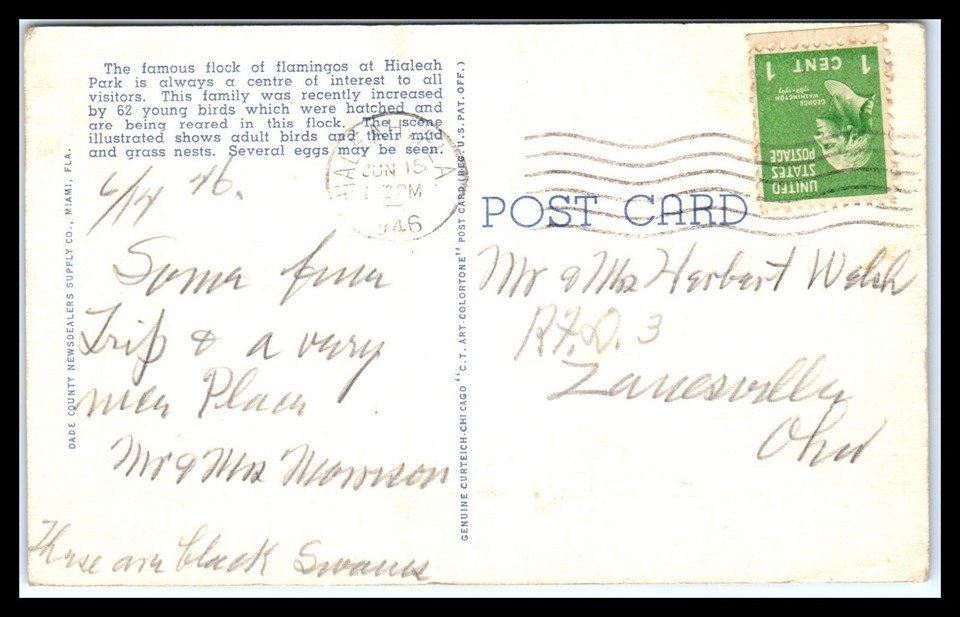 The famous flock of flamingos at Hialeah
Park is always a centre of interest to all
visitors. This family was recently increased
by 62 young birds which were hatched and
are being reared in this flock. The scene
illustrated shows adult birds and their mud
and grass nests. Several eggs may be seen.
DADE COUNTY NEWSDEALERS SUPPLY CO., MIAMI, FLA.
6/14 46.
Some fine
Trip & a very
nice Place
Mr & Mrs Morrison
These are black Swans
GENUINE CURTEICH-CHICAGO "C.T. ART-COLORTONE" POST CARD (REG. U.S. PAT. OFF.)
HIALEAH
JUN 15
PM
1946
POST CARD
UNITED
STATES
POSTAGE
GEORGE
WASHINGTON
1789-1797
1 CENT 1
Mr & Mrs Herbert Welsh
R.F.D. 3
Zanesville
Ohio